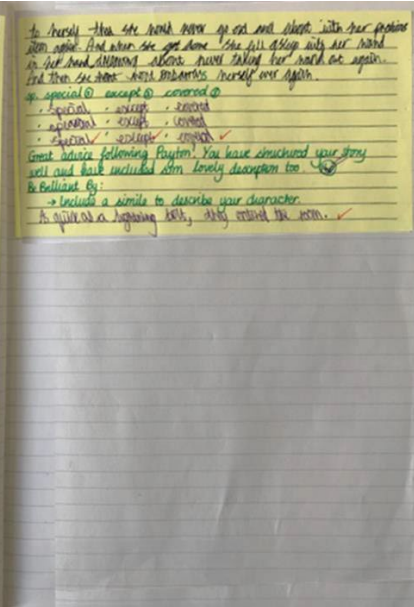 to herself then she would never go out and about with her precious
item again. And when she got home she fell asleep with her hand
in her hand, dreaming about never taking her hand out again.
And then she won't embarrass herself ever again.
sp. special③ except③ covered③
• special • except • covered
• special • except • covered
• special ✓ • except ✓ • covered ✓
Great advice following Payton! You have structured your story
well and have included some lovely description too.
Be Brilliant By:
→ Include a simile to describe your character.
As quick as a lightning bolt, they entered the room. ✓